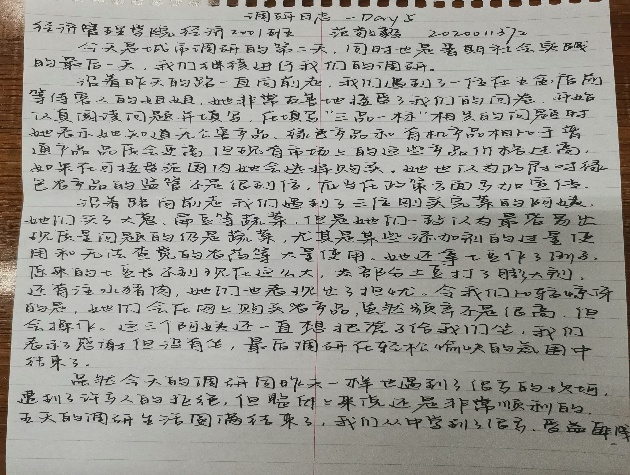 调研日志 --Day 5
经济管理学院 经济2001班 范毅超 2020011372
今天是城市调研的第二天,同时也是暑期社会实践
的最后一天,我们继续进行我们的调研。
沿着昨天的路一直向前走,我们遇到了一位在五金店前
等待家人的姐姐,她非常友善地接受了我们的问卷,开始
认真阅读问题并填写,在填写“三品一标”相关的问题时
她表示她知道无公害产品、绿色产品和有机产品相比于普
通产品品质会更高,但现有市场上的这些产品价格过高,
如果在可接受范围内她会选择购买。她也认为政府对绿
色农产品的监管不是很到位,应当在政策方面多加宣传。
沿着路向前走我们遇到了三位刚买完菜的阿姨,
她们买了大葱、扁豆等蔬菜,但是她们一致认为最容易出
现质量问题的仍是蔬菜,尤其是某些添加剂的过量使
用和无法查觉的农药等大量使用,她还举土豆作了例子,
原来的土豆长不到现在这么大,大部分土豆打了膨大剂,
还有注水猪肉,她们也表现出了担忧。令我们比较惊讶
的是,她们会在网上购买农产品,虽然频率不是很高,但
会操作。这三个阿姨还一直想把凳子给我们坐,我们
表示了感谢但没有坐,最后调研在轻松愉快的氛围中
结束了。
虽然今天的调研同昨天一样也遇到了很多的坎坷,
遇到了许多人的拒绝,但整体上来说还是非常顺利的。
五天的调研生活圆满结束了,我们从中学到了很多,受益匪浅